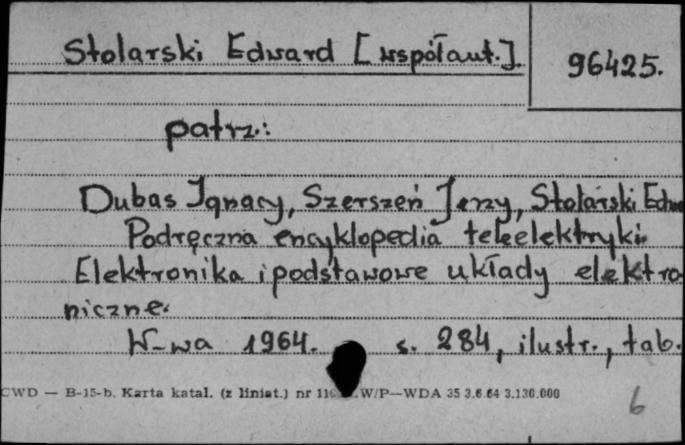 Stolarski Edward [współaut.]
96425.
patrz:
Dubas Ignacy, Szerszeń Jerzy, Stolarski Edwa
Podręczna encyklopedia teleelektryki
Elektronika i podstawowe układy elektro
niczne.
W-wa 1964. s. 284, ilustr., tab.
CWD — B-15-b. Karta katal. (z liniat.) nr W/P—WDA 35 3.6.64 3.130.000
6